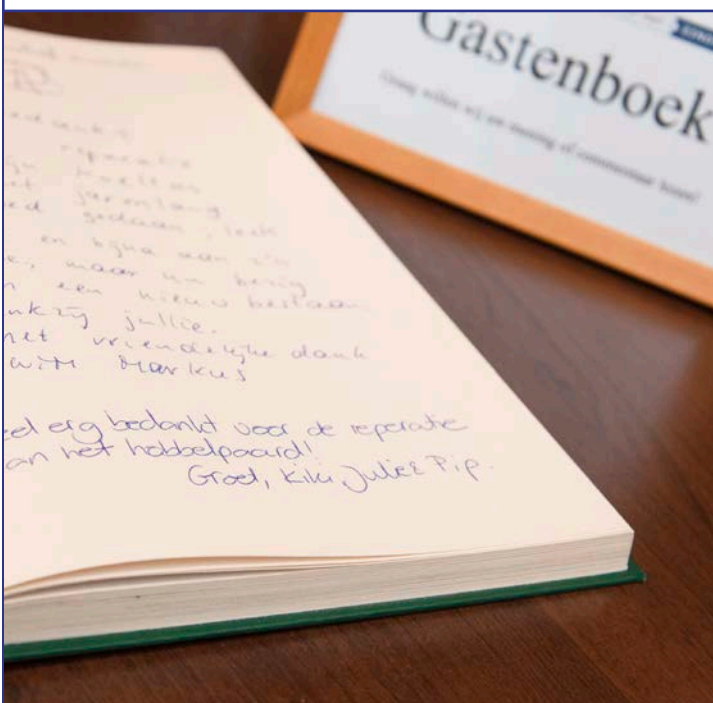 Gastenboek
Graag willen wij uw mening of commentaar lezen!
reparatie
jarenlang
gedaan, leek
en bijna aan z'n
maar nu bezig
een nieuw bestaan
nkzij jullie.
met vriendelijke dank
Wim Markus
eel erg bedankt voor de reperatie
an het hobbelpaard!
Groet, Kiki, Julie & Pip.